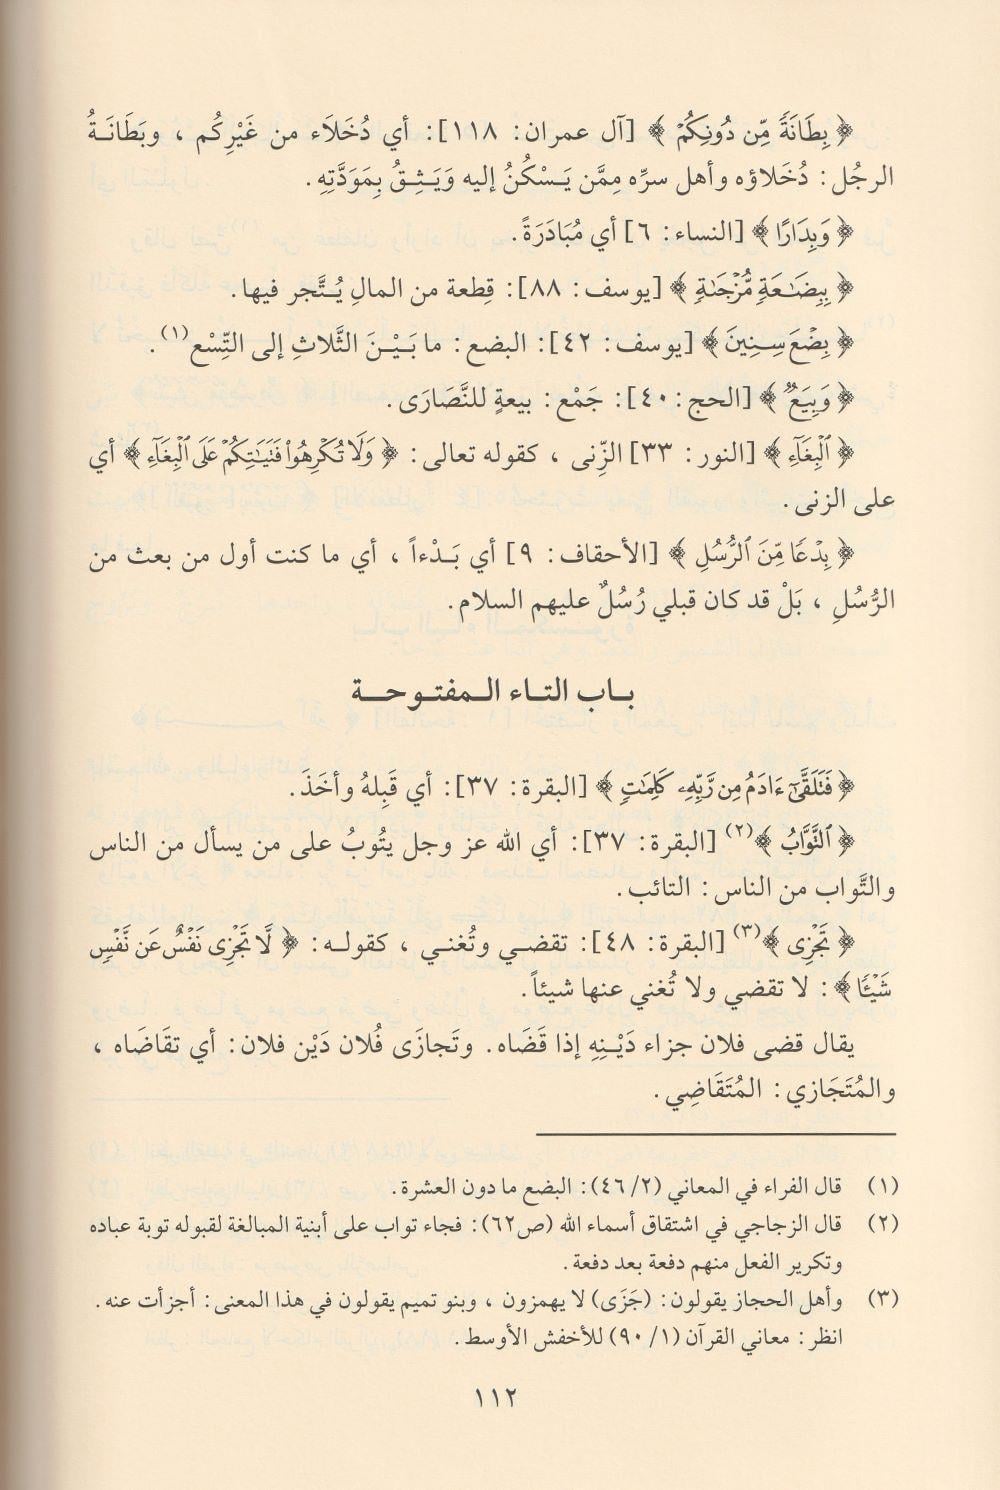 ﴿ بِطَانَةً مِّن دُونِكُمْ ﴾ [آل عمران: ١١٨]: أي دُخَلَاء من غَيْرِكُم ، وبَطَانَـةُ
الرجُل: دُخَلاؤه وأهل سرِّه مِمَّن يَسْكُنُ إليه وَيَـثِـقُ بِمَوَدَّتِهِ.
﴿ وَبِدَارًا ﴾ [النساء: ٦] أي مُبَادَرَةً.
﴿ بِبِضَـٰعَةٍ مُّزْجَىٰةٍ ﴾ [يوسف: ٨٨]: قِطعة من المالِ يُـتَّجر فيها.
﴿ بِضْعَ سِنِينَ ﴾ [يوسف: ٤٢]: البضع: ما بَـيْـنَ الثَّلاثِ إلى التِّسْع(١).
﴿ وَبِيَعٌ ﴾ [الحج: ٤٠]: جَمْع: بيعةٍ للنَّصَارَى.
﴿ ٱلْبِغَآءِ ﴾ [النور: ٣٣] الزِّنى ، كقوله تعالى: ﴿ وَلَا تُكْرِهُوا۟ فَتَيَـٰتِكُمْ عَلَى ٱلْبِغَآءِ ﴾ أي
على الزنى.
﴿ بِدْعًا مِّنَ ٱلرُّسُلِ ﴾ [الأحقاف: ٩] أي بَـدْءاً ، أي ما كنت أول من بعث من
الرُّسُلِ ، بَلْ قد كان قبلي رُسُلٌ عليهم السلام.
بـاب التـاء الـمفتـوحـة
﴿ فَتَلَقَّىٰٓ ءَادَمُ مِن رَّبِّهِۦ كَلِمَـٰتٍ ﴾ [البقرة: ٣٧]: أي قَبِلهُ وأخَذَ.
﴿ ٱلتَّوَّابُ ﴾(٢) [البقرة: ٣٧]: أي الله عز وجل يتُوبُ على من يسأل من الناس
والتَّواب من الناس: التائب.
﴿ تَجْزِى ﴾(٣) [البقرة: ٤٨]: تقضـي وتُغنـي ، كقولـه: ﴿ لَّا تَجْزِى نَفْسٌ عَن نَّفْسٍ
شَيْـًٔا ﴾: لا تقضي ولا تُغني عنها شيئاً.
يقال قضى فلان جزاء دَيْـنِهِ إذا قَضَاه. وتَجازَى فُلان دَيْن فلان: أي تقَاضَاه ،
والمُتَجَازي: المُتَقَاضِي.
(١) قال الفراء في المعاني (٢/ ٤٦): البضع ما دون العشرة.
(٢) قال الزجاجي في اشتقاق أسماء الله (ص٦٢): فجاء تواب على أبنية المبالغة لقبوله توبة عباده
وتكرير الفعل منهم دفعة بعد دفعة.
(٣) وأهل الحجاز يقولون: (جَزَى) لا يهمزون ، وبنو تميم يقولون في هذا المعنى: أجزأت عنه.
انظر: معاني القرآن (١/ ٩٠) للأخفش الأوسط.
١١٢